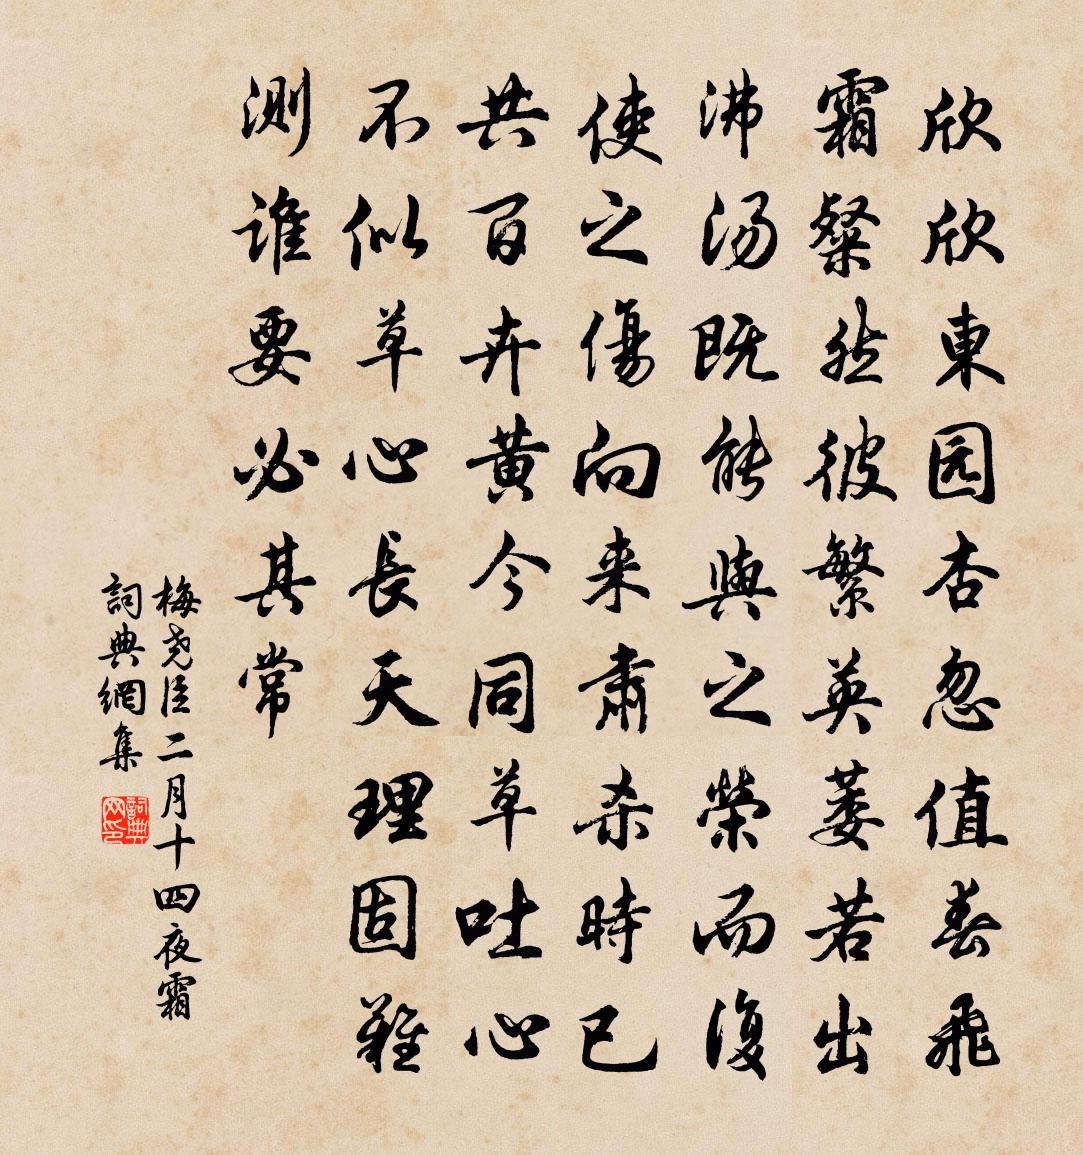 欣欣東园杏忽值春飛
霜粲然彼繁英萎若出
沸汤既能與之榮而復
使之傷向来肅杀時已
共百卉黄今同草吐心
不似草心長天理固難
測誰要必其常
梅尧臣二月十四夜霜
詞典網集
詞典网印